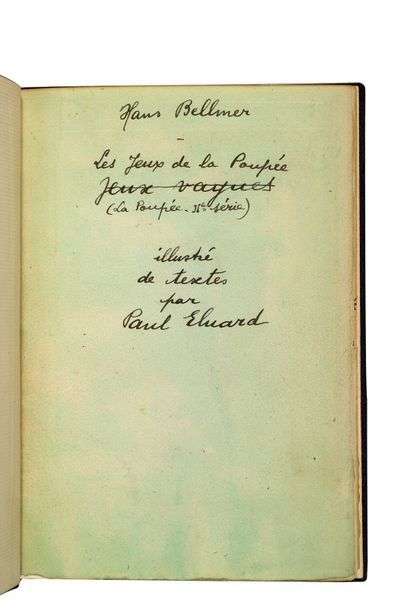 Hans Bellmer
-
Les Jeux de la Poupée
Jeux vagues
(La Poupée - IIe série)
illustré
de textes
par
Paul Eluard